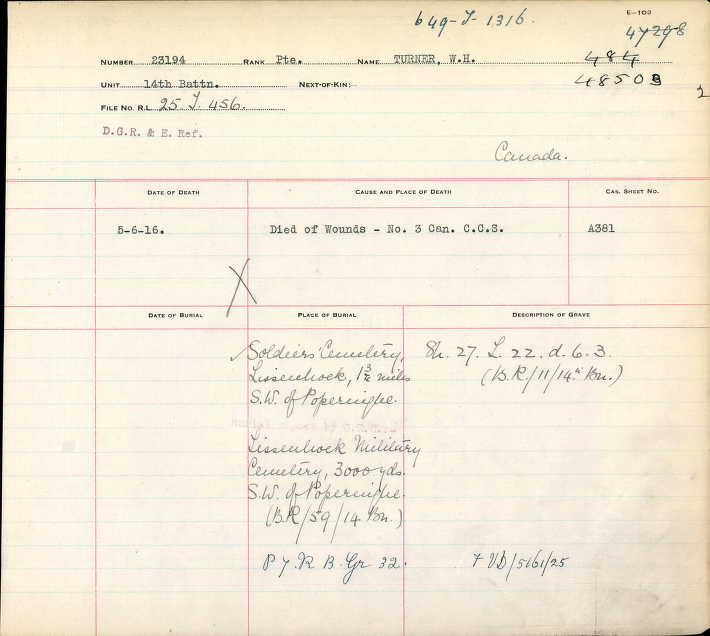 649-T-1316.
E-103
47298
NUMBER 23194 RANK Pte. NAME TURNER, W.H. 484
UNIT 14th Battn. NEXT-OF-KIN:- 48503
FILE No. R.L. 25. T. 456. 2
D.G.R. & E. Ref.
Canada.
DATE OF DEATH CAUSE AND PLACE OF DEATH CAS. SHEET NO.
5-6-16. Died of Wounds - No. 3 Can. C.C.S. A381
DATE OF BURIAL PLACE OF BURIAL DESCRIPTION OF GRAVE
Soldiers' Cemetery, Sh. 27. L. 22. d. 6. 3.
Lissenhoek, 1¾ miles (B.R/11/14th Bn.)
S.W. of Poperinghe.
Lissenhoek Military
Cemetery, 3000 yds.
S.W. of Poperinghe.
(B.R/59/14 Bn.)
P 7. R B. Gr 32. 7 VD/5161/25